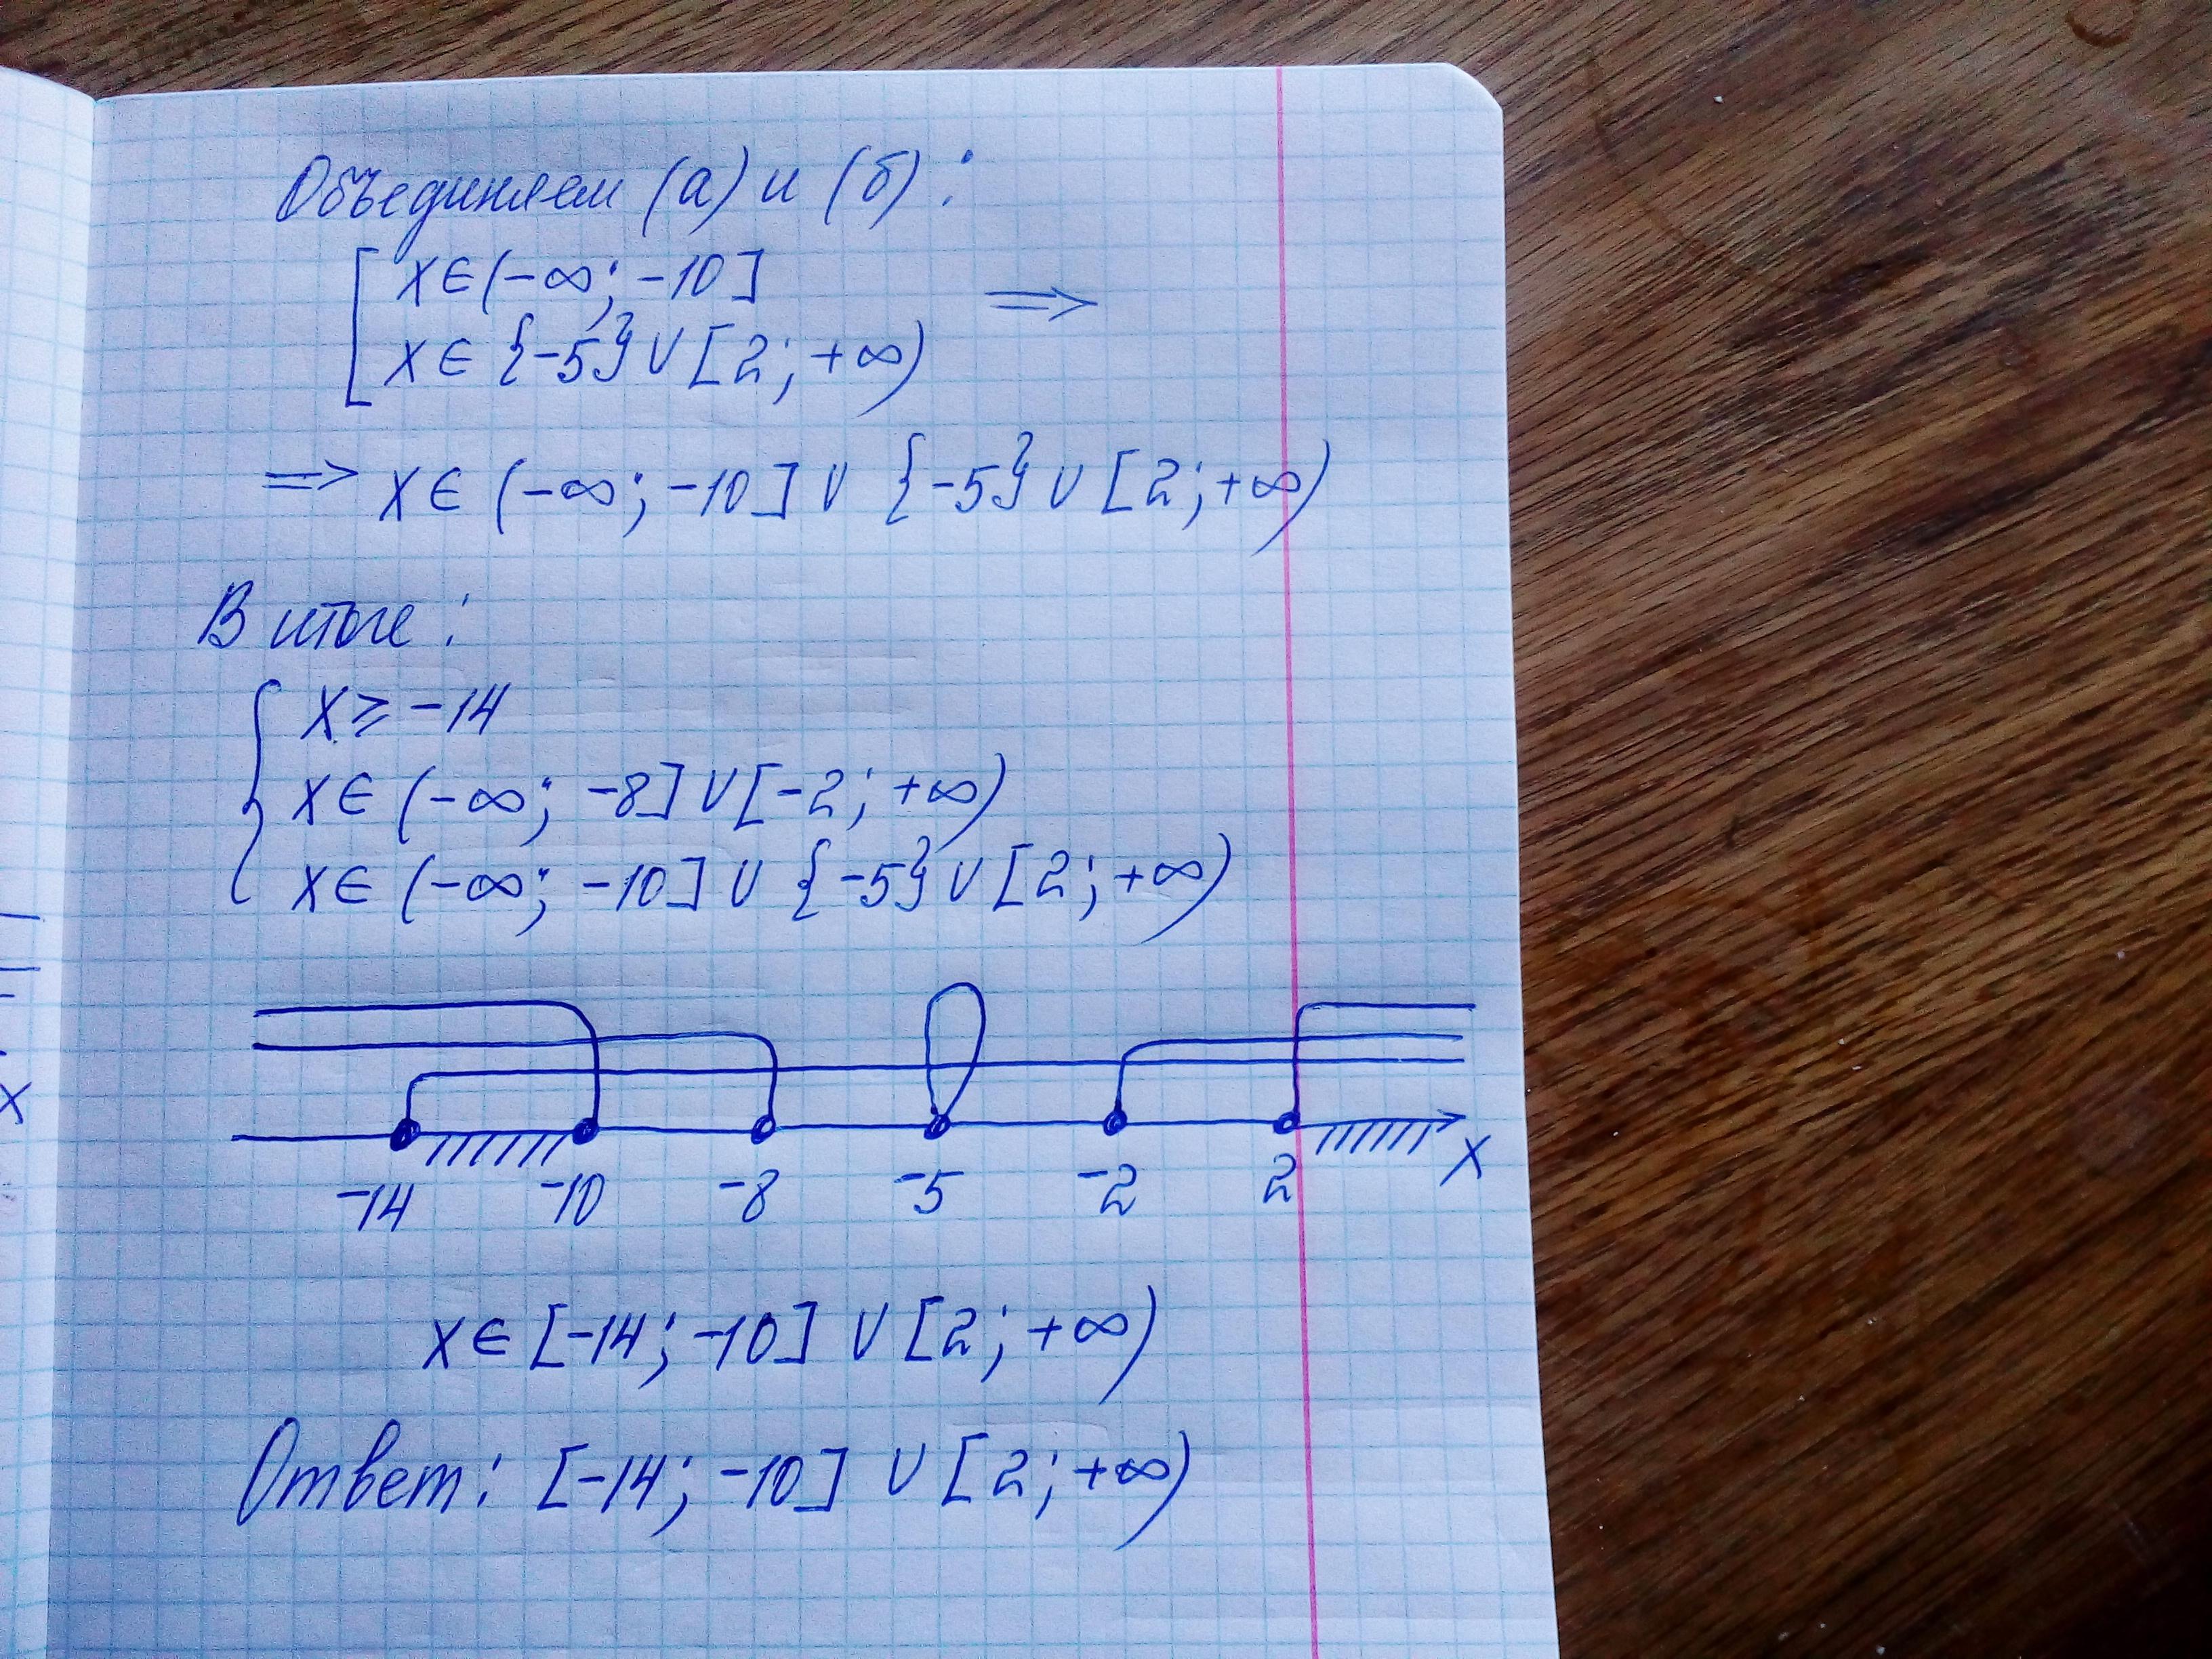 Объединяем (а) и (б):
[ x∈(-∞; -10]
x∈ {-5}∪[2; +∞) ⇒
⇒ x∈ (-∞; -10]∪ {-5}∪ [2; +∞)
В итоге:
{ x ⩾ -14
x∈ (-∞; -8]∪[-2; +∞)
x∈ (-∞; -10]∪ {-5}∪ [2; +∞)
-14 -10 -8 -5 -2 2 x
x∈[-14; -10] ∪ [2; +∞)
Ответ: [-14; -10] ∪ [2; +∞)
x